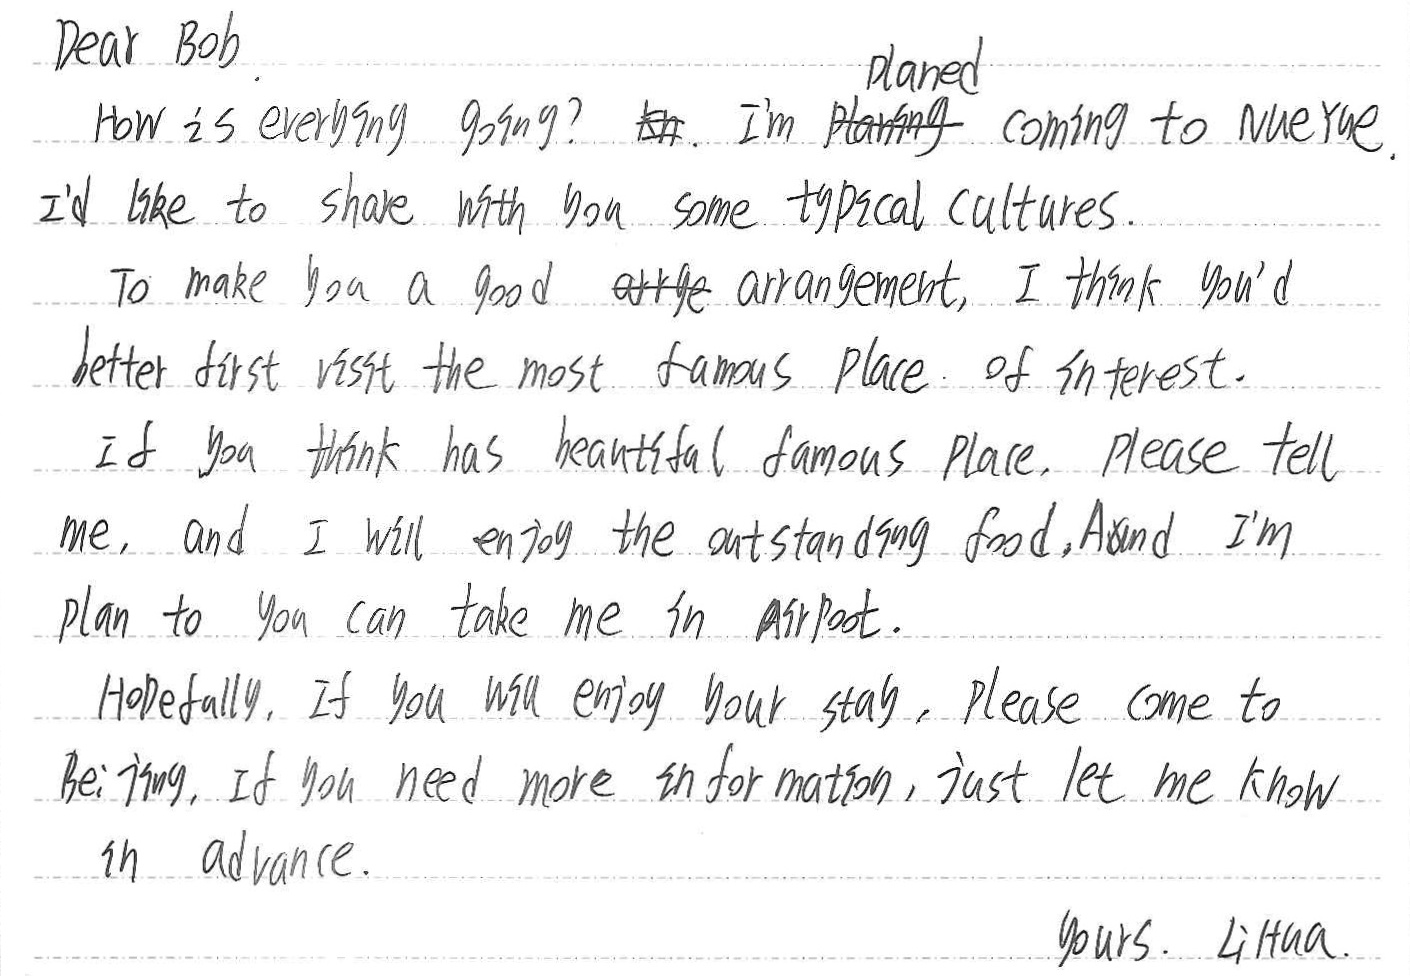 Dear Bob.
How is everying going? I'm planed coming to NueYue.
I'd like to share with you some typical cultures.
To make you a good arrangement, I think you'd
better first visit the most famous place of interest.
If you think has beautiful famous place. Please tell
me, and I will enjoy the outstanding food, And I'm
plan to you can take me in Airpoot.
Hopefully, If you will enjoy your stay, please come to
Beijing, If you need more information, just let me know
in advance.
Yours. LiHua.